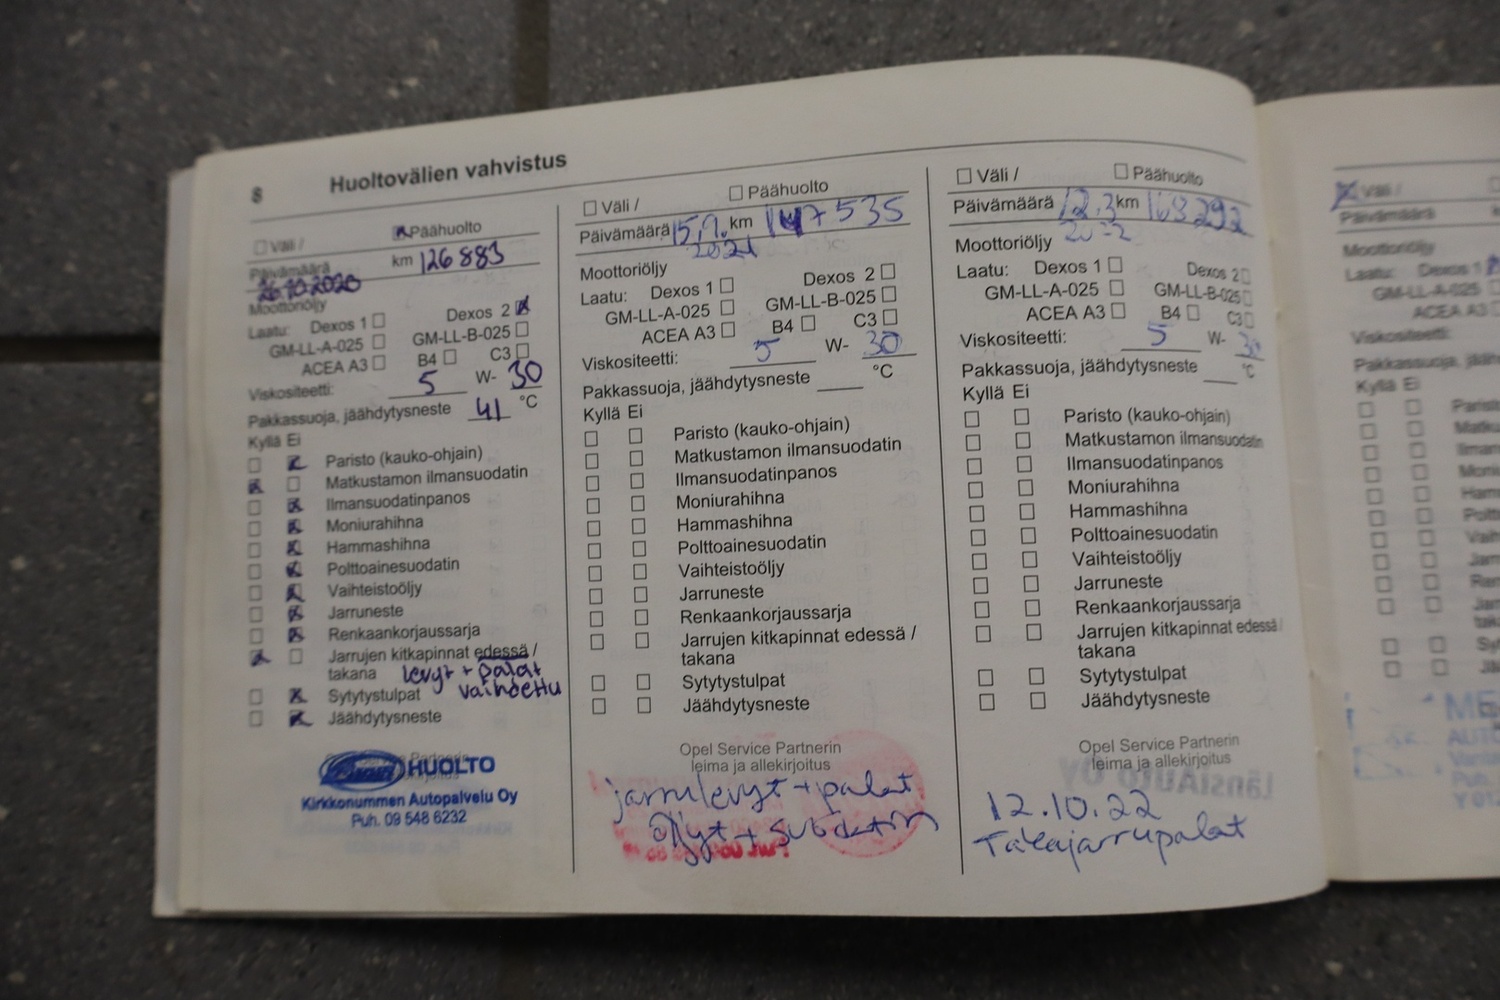 8 Huoltovälien vahvistus
Väli / Päähuolto
Päivämäärä km 126 883
26.10.2020
Moottoriöljy
Laatu: Dexos 1 Dexos 2
GM-LL-A-025 GM-LL-B-025
ACEA A3 B4 C3
Viskositeetti: 5 W- 30
Pakkassuoja, jäähdytysneste 41 °C
Kyllä Ei
Paristo (kauko-ohjain)
Matkustamon ilmansuodatin
Ilmansuodatinpanos
Moniurahihna
Hammashihna
Polttoainesuodatin
Vaihteistoöljy
Jarruneste
Renkaankorjaussarja
Jarrujen kitkapinnat edessä /
takana levyt + palat
Sytytystulpat vaihdettu
Jäähdytysneste
HUOLTO
Kirkkonummen Autopalvelu Oy
Puh. 09 548 6232
Väli / Päähuolto
Päivämäärä 15.9. km 147 535
2021
Moottoriöljy
Laatu: Dexos 1 Dexos 2
GM-LL-A-025 GM-LL-B-025
ACEA A3 B4 C3
Viskositeetti: 5 W- 30
Pakkassuoja, jäähdytysneste °C
Kyllä Ei
Paristo (kauko-ohjain)
Matkustamon ilmansuodatin
Ilmansuodatinpanos
Moniurahihna
Hammashihna
Polttoainesuodatin
Vaihteistoöljy
Jarruneste
Renkaankorjaussarja
Jarrujen kitkapinnat edessä /
takana
Sytytystulpat
Jäähdytysneste
Opel Service Partnerin
leima ja allekirjoitus
jarrulevyt + palat
öljyt + suodatin
Väli / Päähuolto
Päivämäärä 12.3 km 168 292
Moottoriöljy 2022
Laatu: Dexos 1 Dexos 2
GM-LL-A-025 GM-LL-B-025
ACEA A3 B4 C3
Viskositeetti: 5 W- 30
Pakkassuoja, jäähdytysneste °C
Kyllä Ei
Paristo (kauko-ohjain)
Matkustamon ilmansuodatin
Ilmansuodatinpanos
Moniurahihna
Hammashihna
Polttoainesuodatin
Vaihteistoöljy
Jarruneste
Renkaankorjaussarja
Jarrujen kitkapinnat edessä /
takana
Sytytystulpat
Jäähdytysneste
Opel Service Partnerin
leima ja allekirjoitus
12.10.22
Takajarrupalat
Väli /
Päivämäärä
Moottoriöljy
Laatu: Dexos 1
GM-LL-A-025
ACEA A3
Viskositeetti:
Kyllä Ei